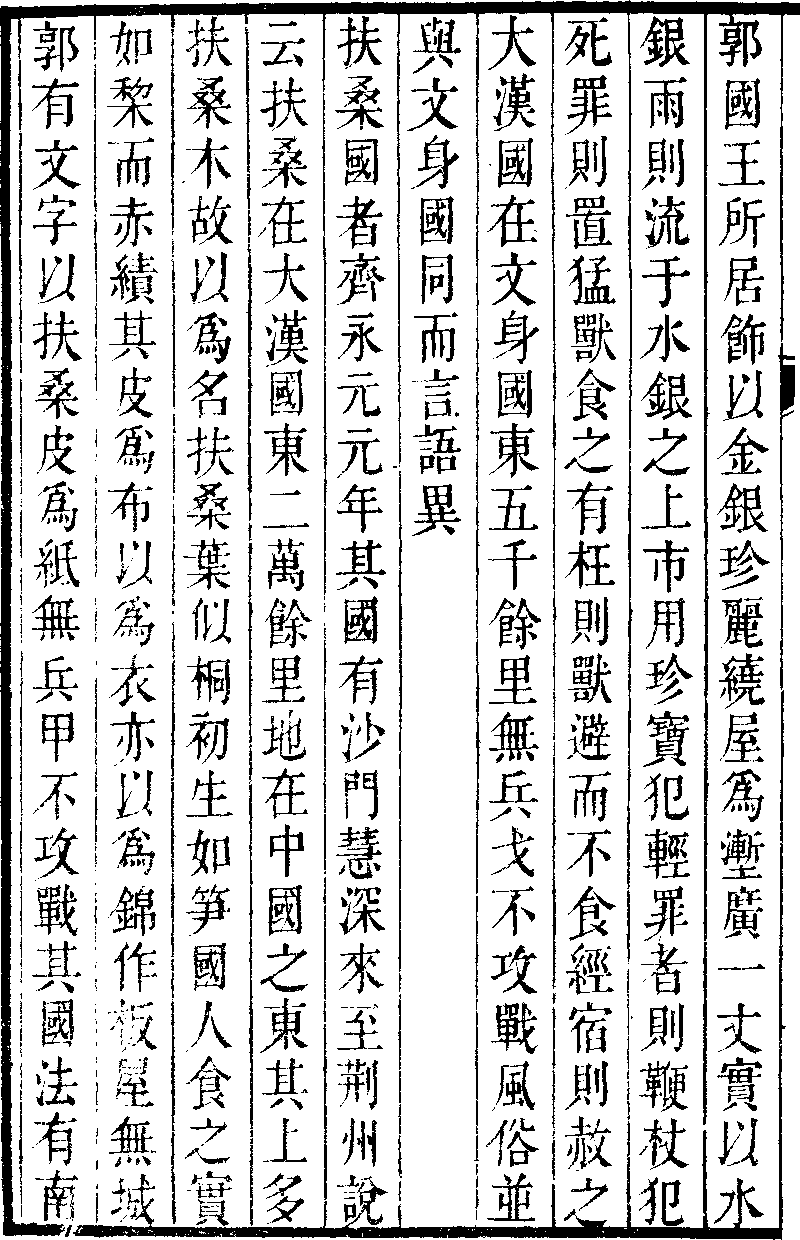 郭國王所居飾以金銀珍麗繞屋爲壍廣一丈實以水
銀雨則流于水銀之上市用珍寶犯輕罪者則鞭杖犯
死罪則置猛獸食之有枉則獸避而不食經宿則赦之
大漢國在文身國東五千餘里無兵戈不攻戰風俗並
與文身國同而言語異
扶桑國者齊永元元年其國有沙門慧深來至荆州說
云扶桑在大漢國東二萬餘里地在中國之東其上多
扶桑木故以爲名扶桑葉似桐初生如笋國人食之實
如棃而赤績其皮爲布以爲衣亦以爲錦作板屋無城
郭有文字以扶桑皮爲紙無兵甲不攻戰其國法有南